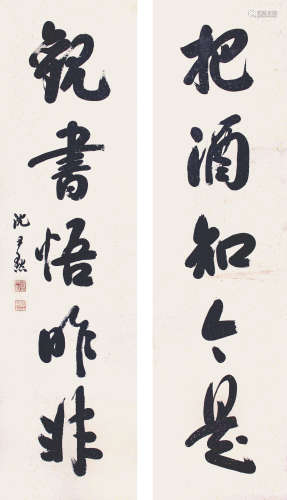 把酒知今是
觀書悟昨非
沈尹默